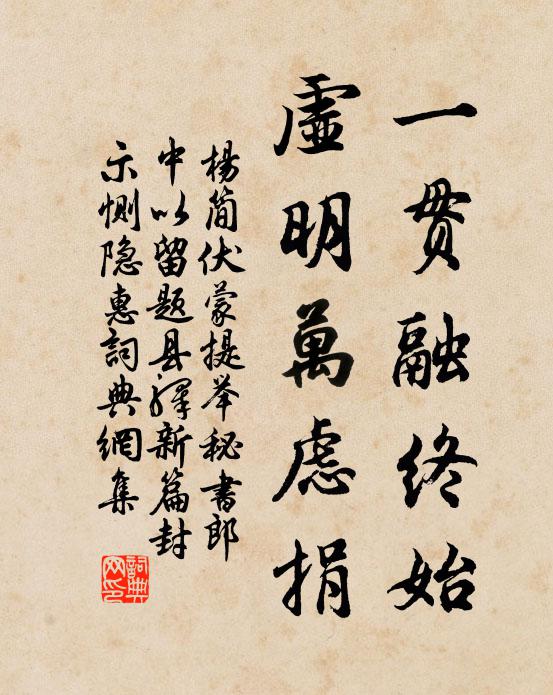 一贯融终始
虚明萬虑捐
楊简伏蒙提举秘書郎
中以留题县驿新篇封
示恻隐惠詞典網集
詞典
网印